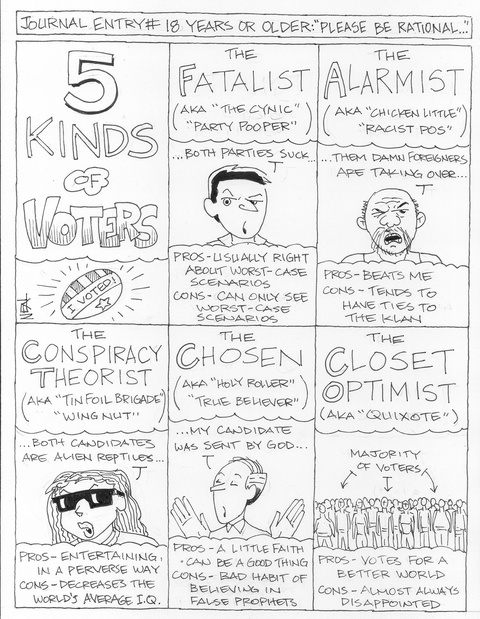 JOURNAL ENTRY# 18 YEARS OR OLDER: "PLEASE BE RATIONAL..."
5
KINDS
OF
VOTERS
I VOTED!
THE
FATALIST
(AKA "THE CYNIC"
"PARTY POOPER")
...BOTH PARTIES SUCK...
PROS-USUALLY RIGHT
ABOUT WORST-CASE
SCENARIOS
CONS-CAN ONLY SEE
WORST-CASE
SCENARIOS
THE
ALARMIST
(AKA "CHICKEN LITTLE"
"RACIST POS")
...THEM DAMN FOREIGNERS
ARE TAKING OVER...
PROS-BEATS ME
CONS-TENDS TO
HAVE TIES TO
THE KLAN
THE
CONSPIRACY
THEORIST
(AKA "TIN FOIL BRIGADE"
"WING NUT")
...BOTH CANDIDATES
ARE ALIEN REPTILES...
PROS-ENTERTAINING,
IN A PERVERSE WAY
CONS-DECREASES THE
WORLD'S AVERAGE I.Q.
THE
CHOSEN
(AKA "HOLY ROLLER"
"TRUE BELIEVER")
...MY CANDIDATE
WAS SENT BY GOD...
PROS-A LITTLE FAITH
CAN BE A GOOD THING
CONS-BAD HABIT OF
BELIEVING IN
FALSE PROPHETS
THE
CLOSET
OPTIMIST
(AKA "QUIXOTE")
MAJORITY
OF VOTERS
PROS-VOTES FOR A
BETTER WORLD
CONS-ALMOST ALWAYS
DISAPPOINTED